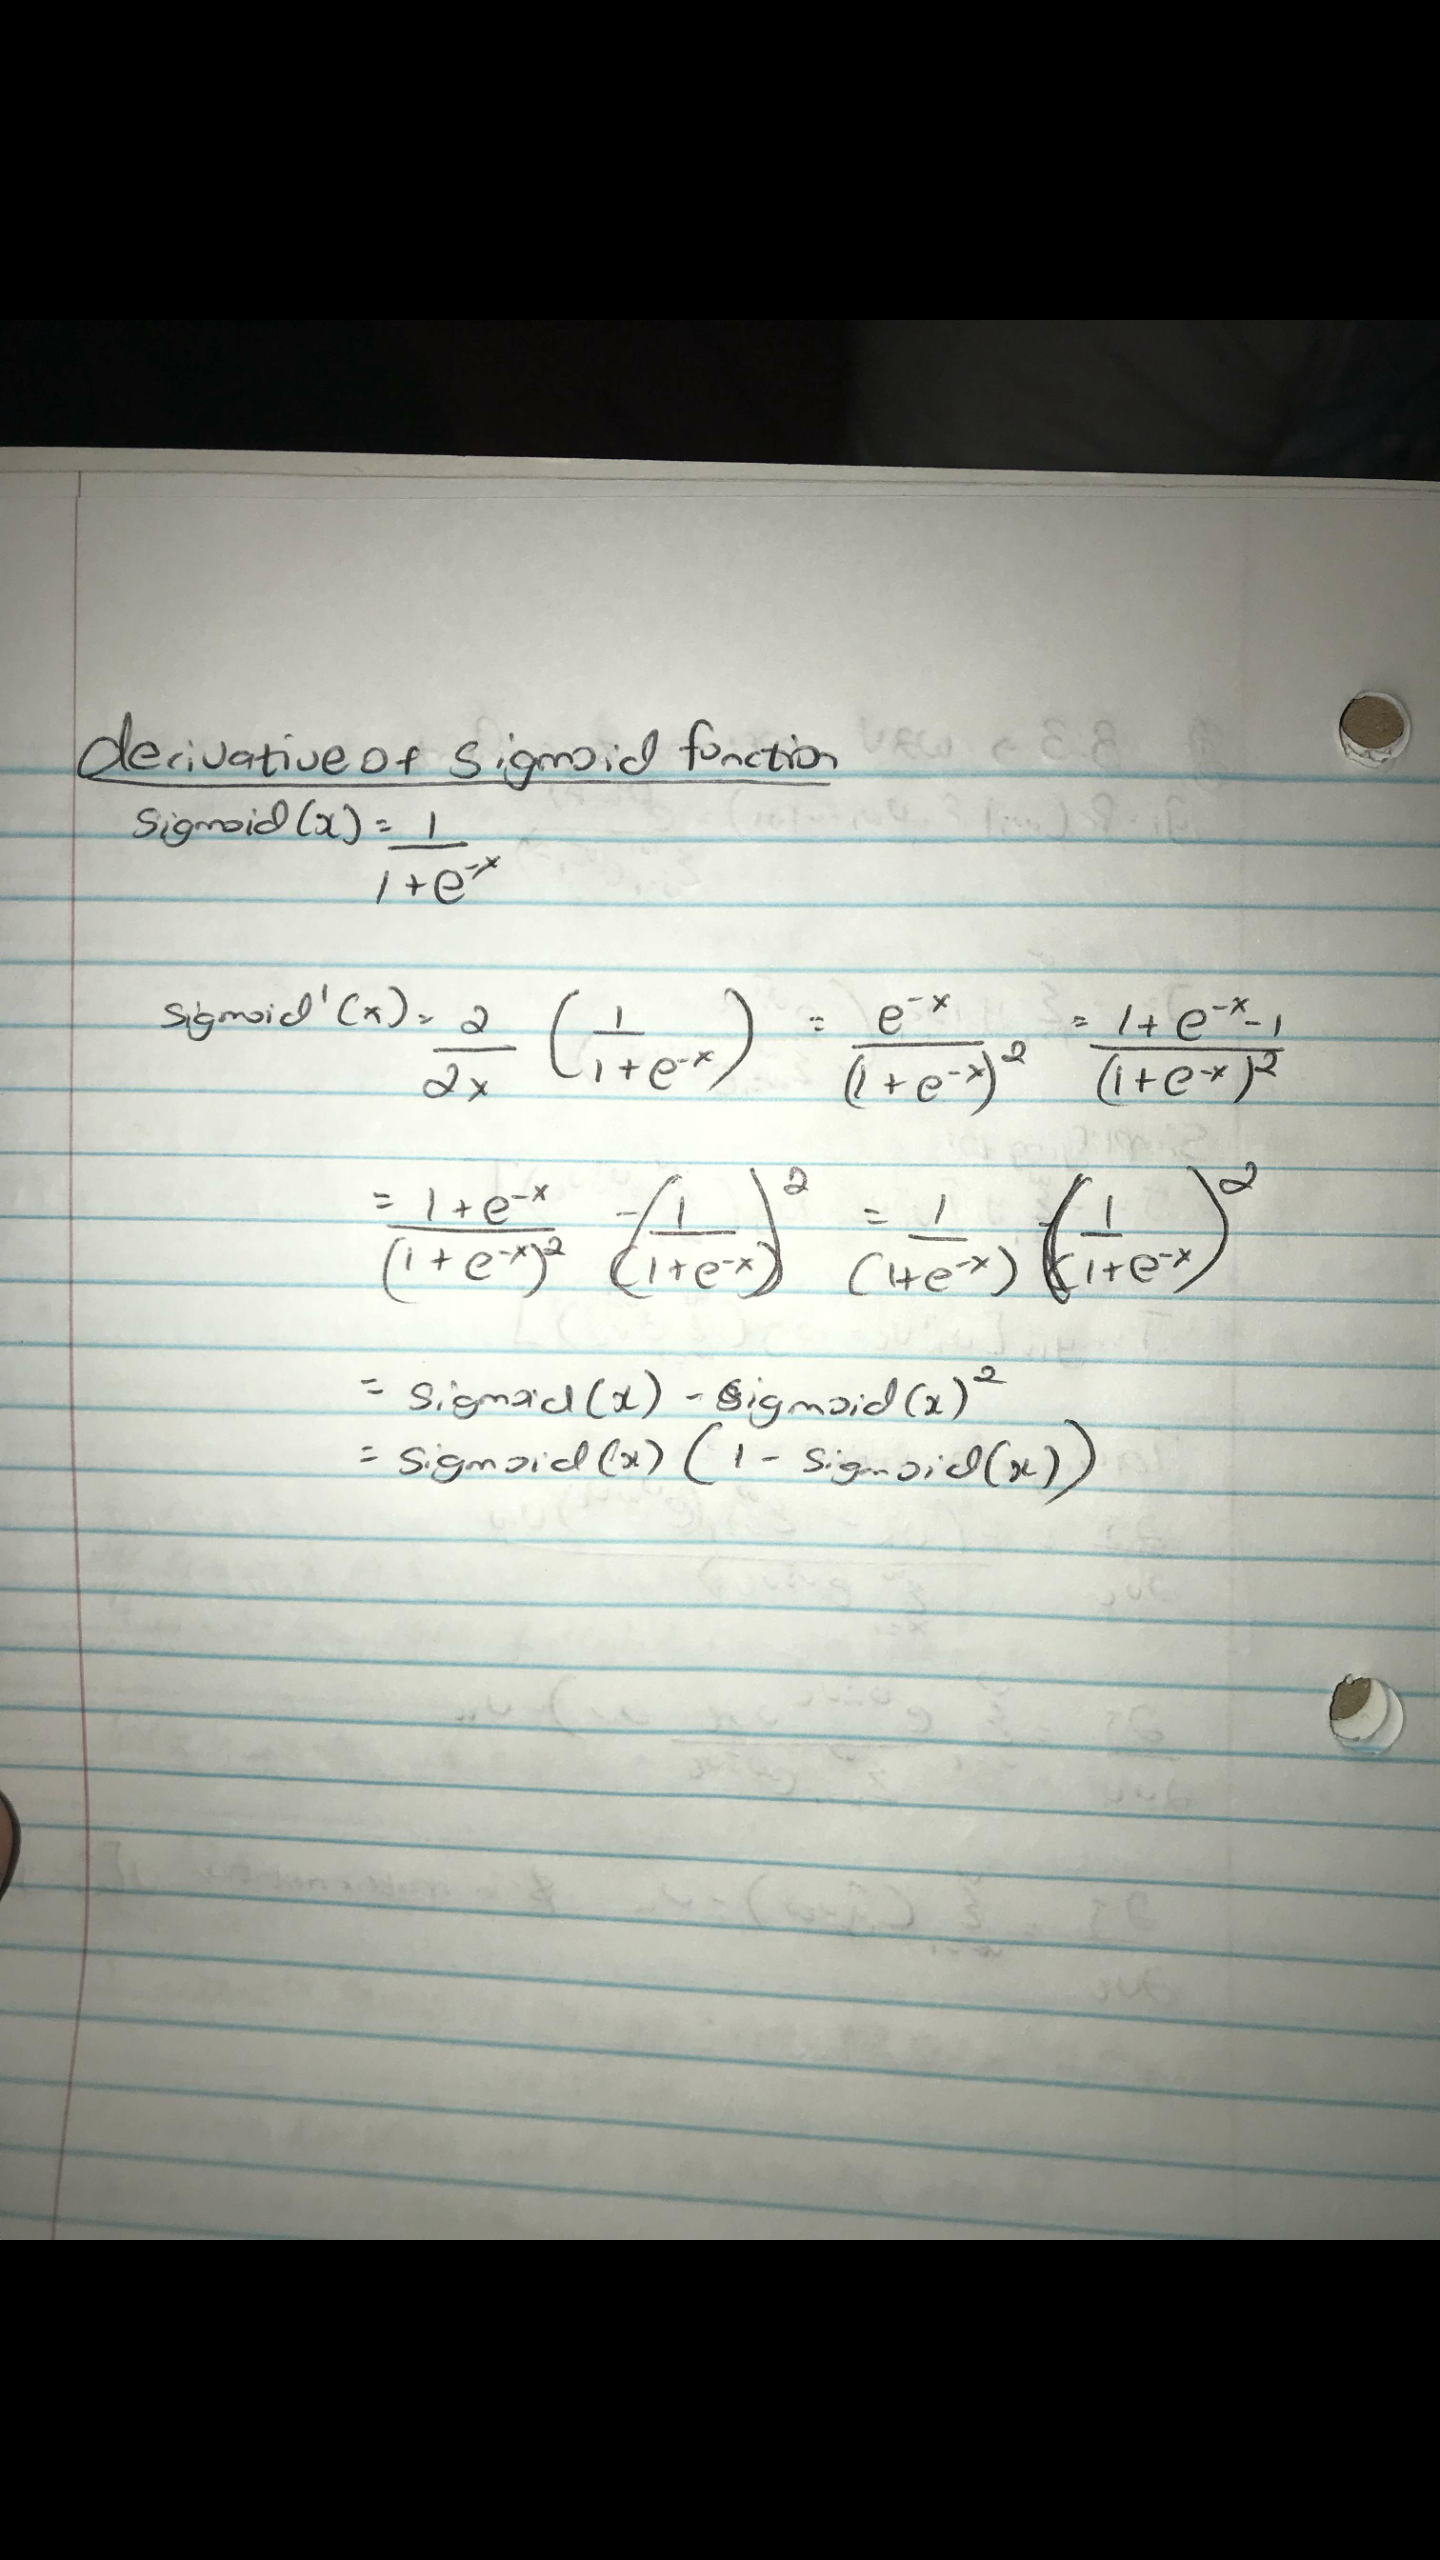 derivative of sigmoid function
Sigmoid(x) = 1/(1+e^-x)
Sigmoid'(x) = ∂/∂x (1/(1+e^-x)) = e^-x/(1+e^-x)^2 = (1+e^-x-1)/(1+e^-x)^2
= (1+e^-x)/(1+e^-x)^2 - (1/(1+e^-x))^2 = 1/(1+e^-x) - (1/(1+e^-x))^2
= sigmoid(x) - Sigmoid(x)^2
= Sigmoid(x) (1 - Sigmoid(x))